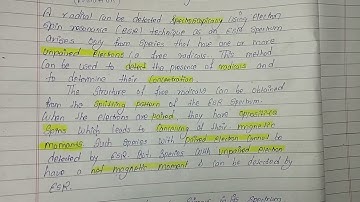 A radical can be detected spectroscopically (using Electron
spin resonance (ESR) technique as an ESR spectrum
arises only from species that have one or more
unpaired Electrons i.e free radicals. This method
can be used to detect the presence of radicals and
to determine their concentration
The structure of free radicals can be obtained
from the splitting pattern of the ESR spectrum.
When the electrons are paired, they have
spins which leads to of their magnetic
moments such species with paired electron cannot be
detected by ESR. But species with unpaired electron
have a net magnetic moment & can be detected by
ESR.